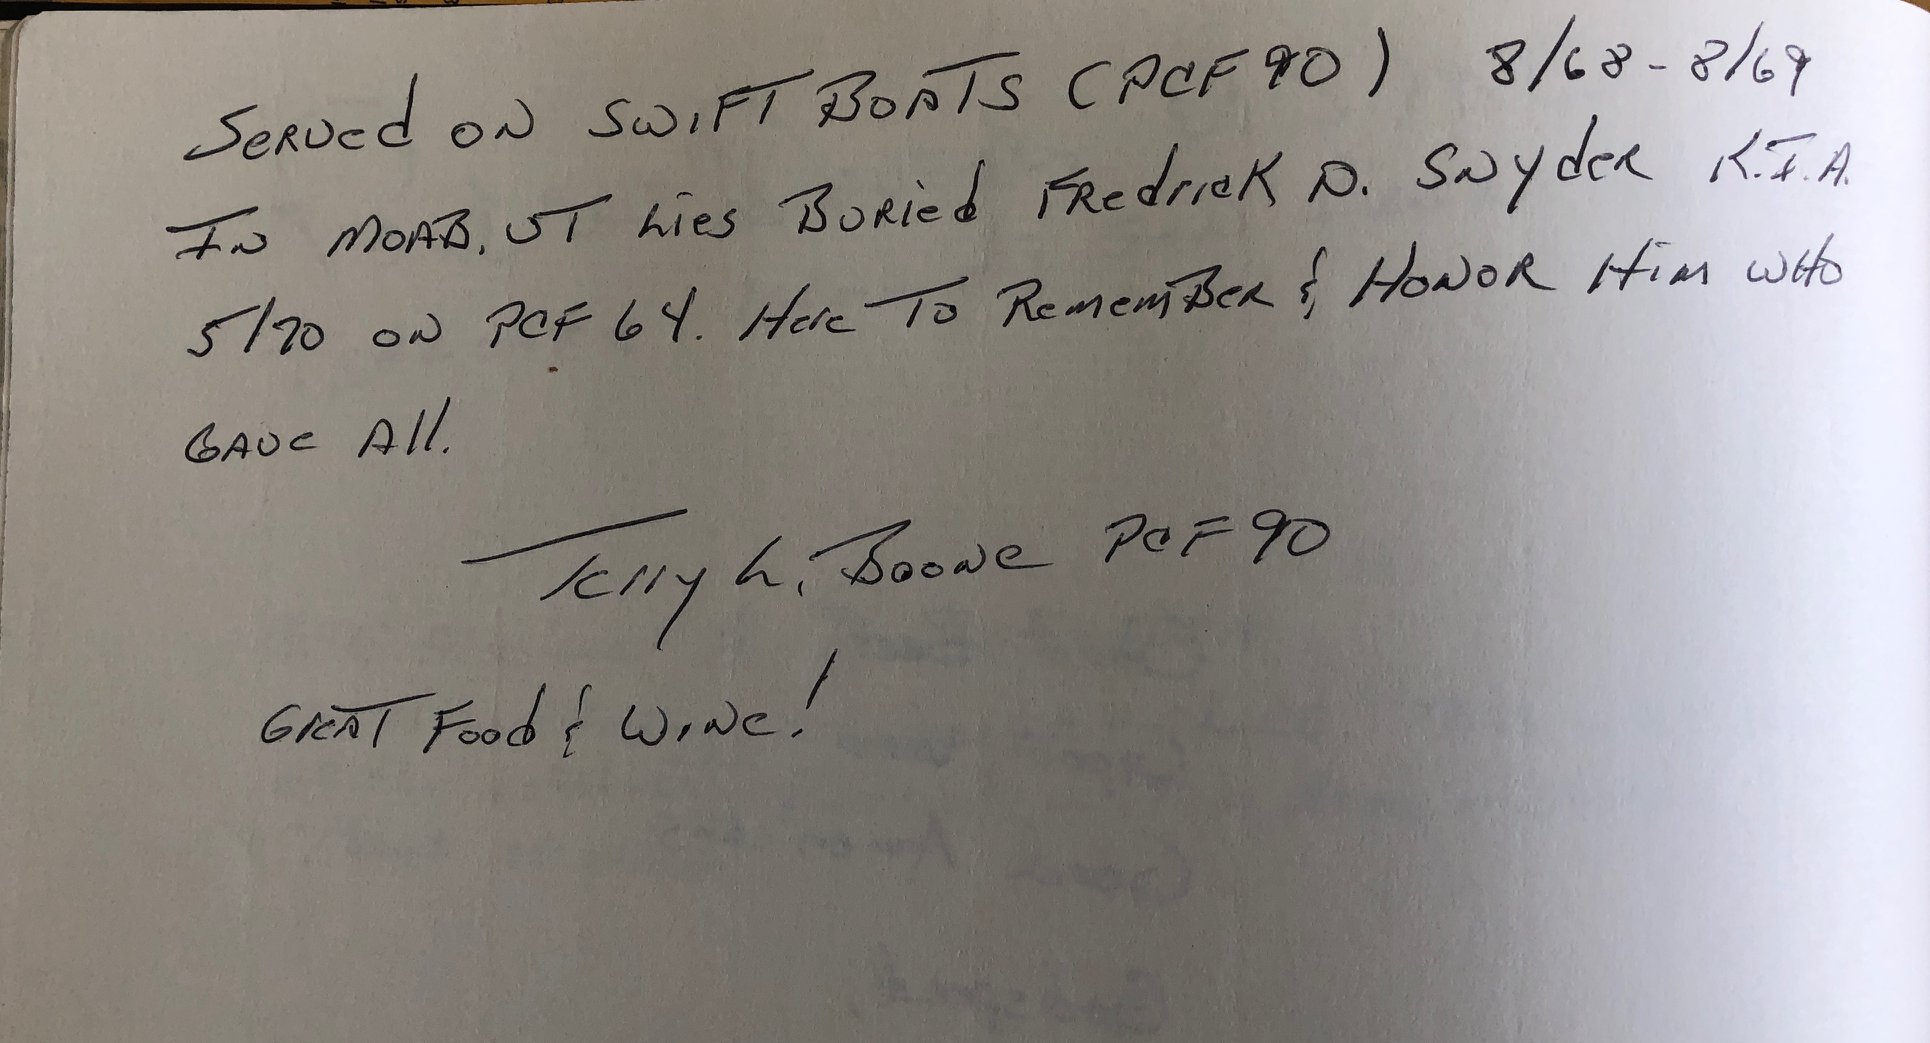 Served on Swift Boats (PCF 90) 8/68-8/69
In Moab, UT Lies Buried Fredrick D. Snyder K.I.A.
5/70 on PCF 64. Here To Remember & Honor Him who
Gave All.
Terry L. Boone PCF 90
Great Food & Wine!